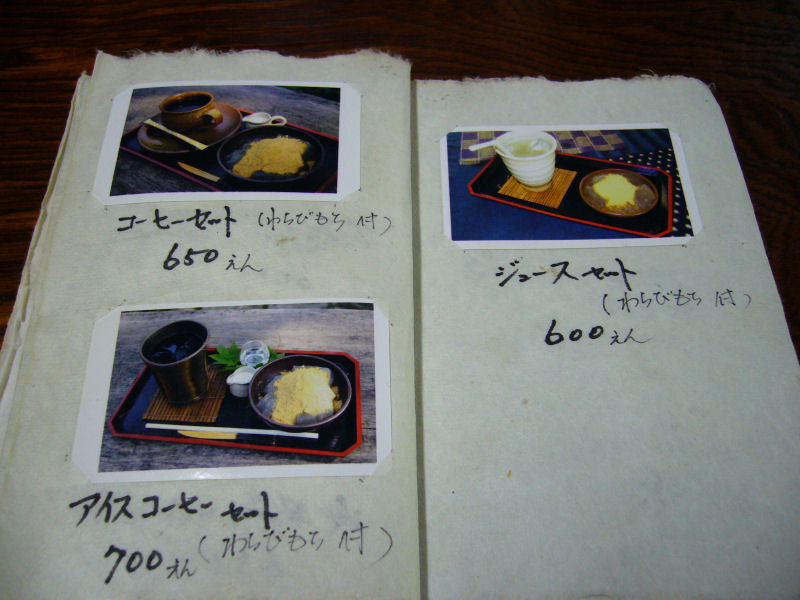 コーヒーセット (わらびもち付)
650えん
アイスコーヒーセット
(わらびもち付)
700えん
ジュースセット
(わらびもち付)
600えん